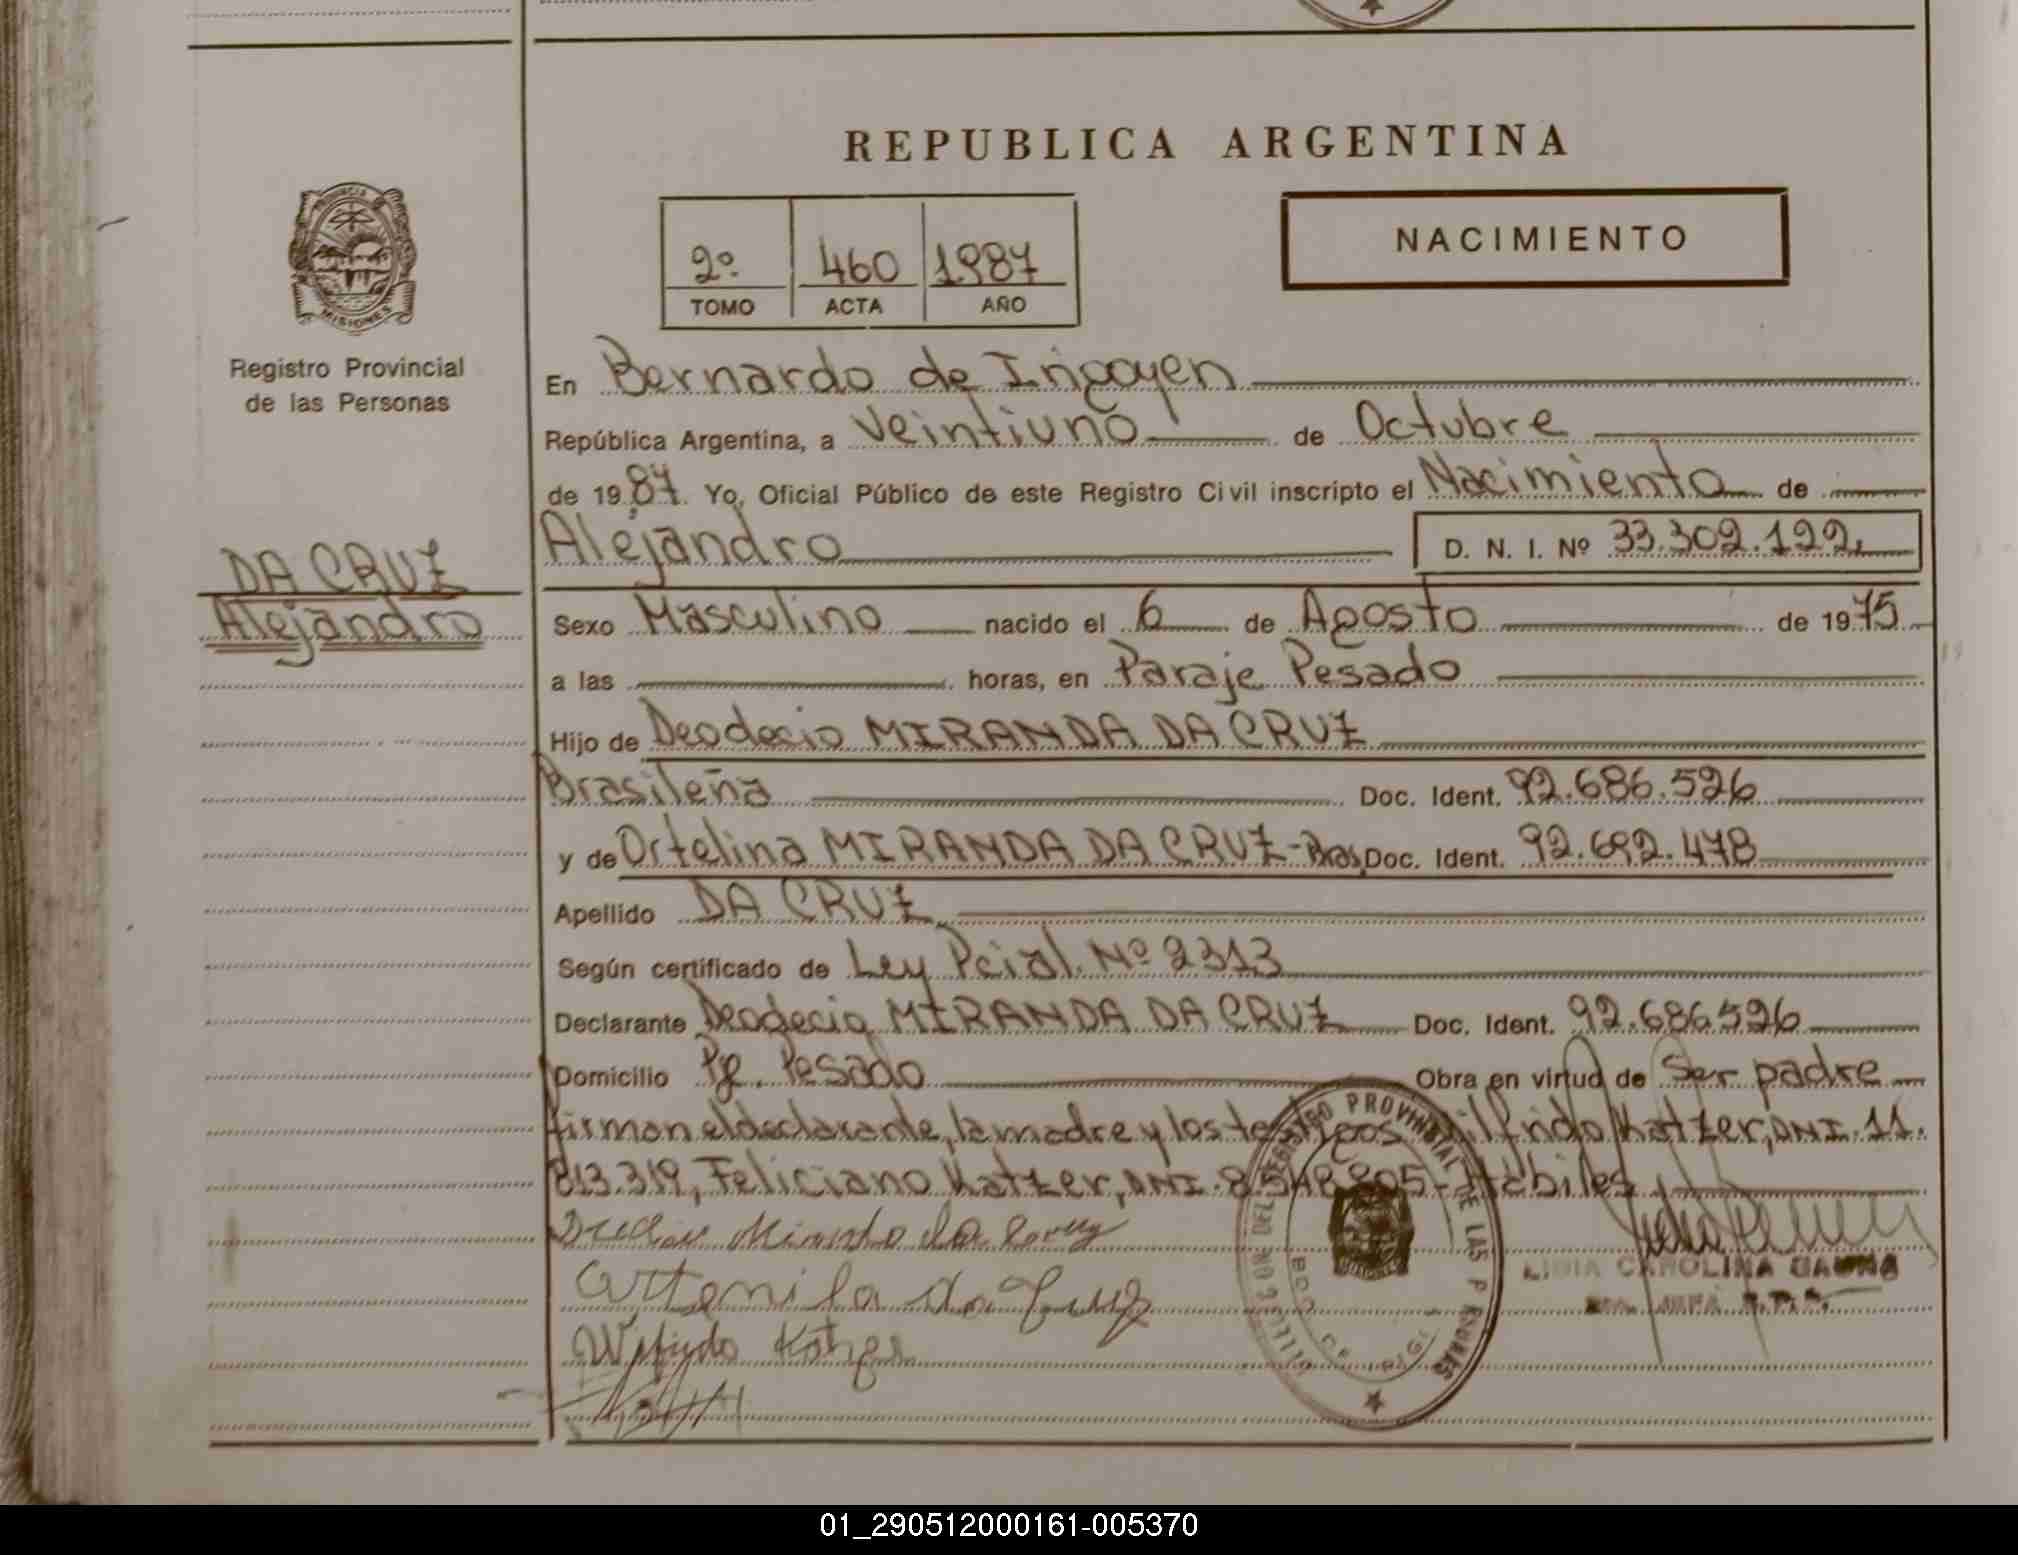 REPUBLICA ARGENTINA
NACIMIENTO
2º 460 1987
TOMO ACTA AÑO
PROVINCIA
MISIONES
Registro Provincial
de las Personas
DA CRUZ
Alejandro
En Bernardo de Irigoyen
República Argentina, a Veintiuno de Octubre
de 1987. Yo, Oficial Público de este Registro Civil inscripto el Nacimiento de
Alejandro D. N. I. Nº 33.302.122
Sexo Masculino nacido el 6 de Agosto de 1975
a las horas, en Paraje Pesado
Hijo de Deodecio MIRANDA DA CRUZ
Brasileña Doc. Ident. 92.686.526
y de Ortelina MIRANDA DA CRUZ-Bras. Doc. Ident. 92.692.478
Apellido DA CRUZ
Según certificado de Ley Pcial. Nº 2313
Declarante Deodecio MIRANDA DA CRUZ Doc. Ident. 92.686526
Domicilio Pje. Pesado Obra en virtud de Ser padre
firman el declarante, la madre y los testigos Wilfrido Katzer, DNI. 11.
813.319, Feliciano Katzer, DNI. 8.548.805-Hábiles
Miranda da Cruz
da Cruz
Wilfrido Katzer
REGISTRO PROVINCIAL DE LAS PERSONAS
LIDIA CAROLINA GAUNA
01_290512000161-005370